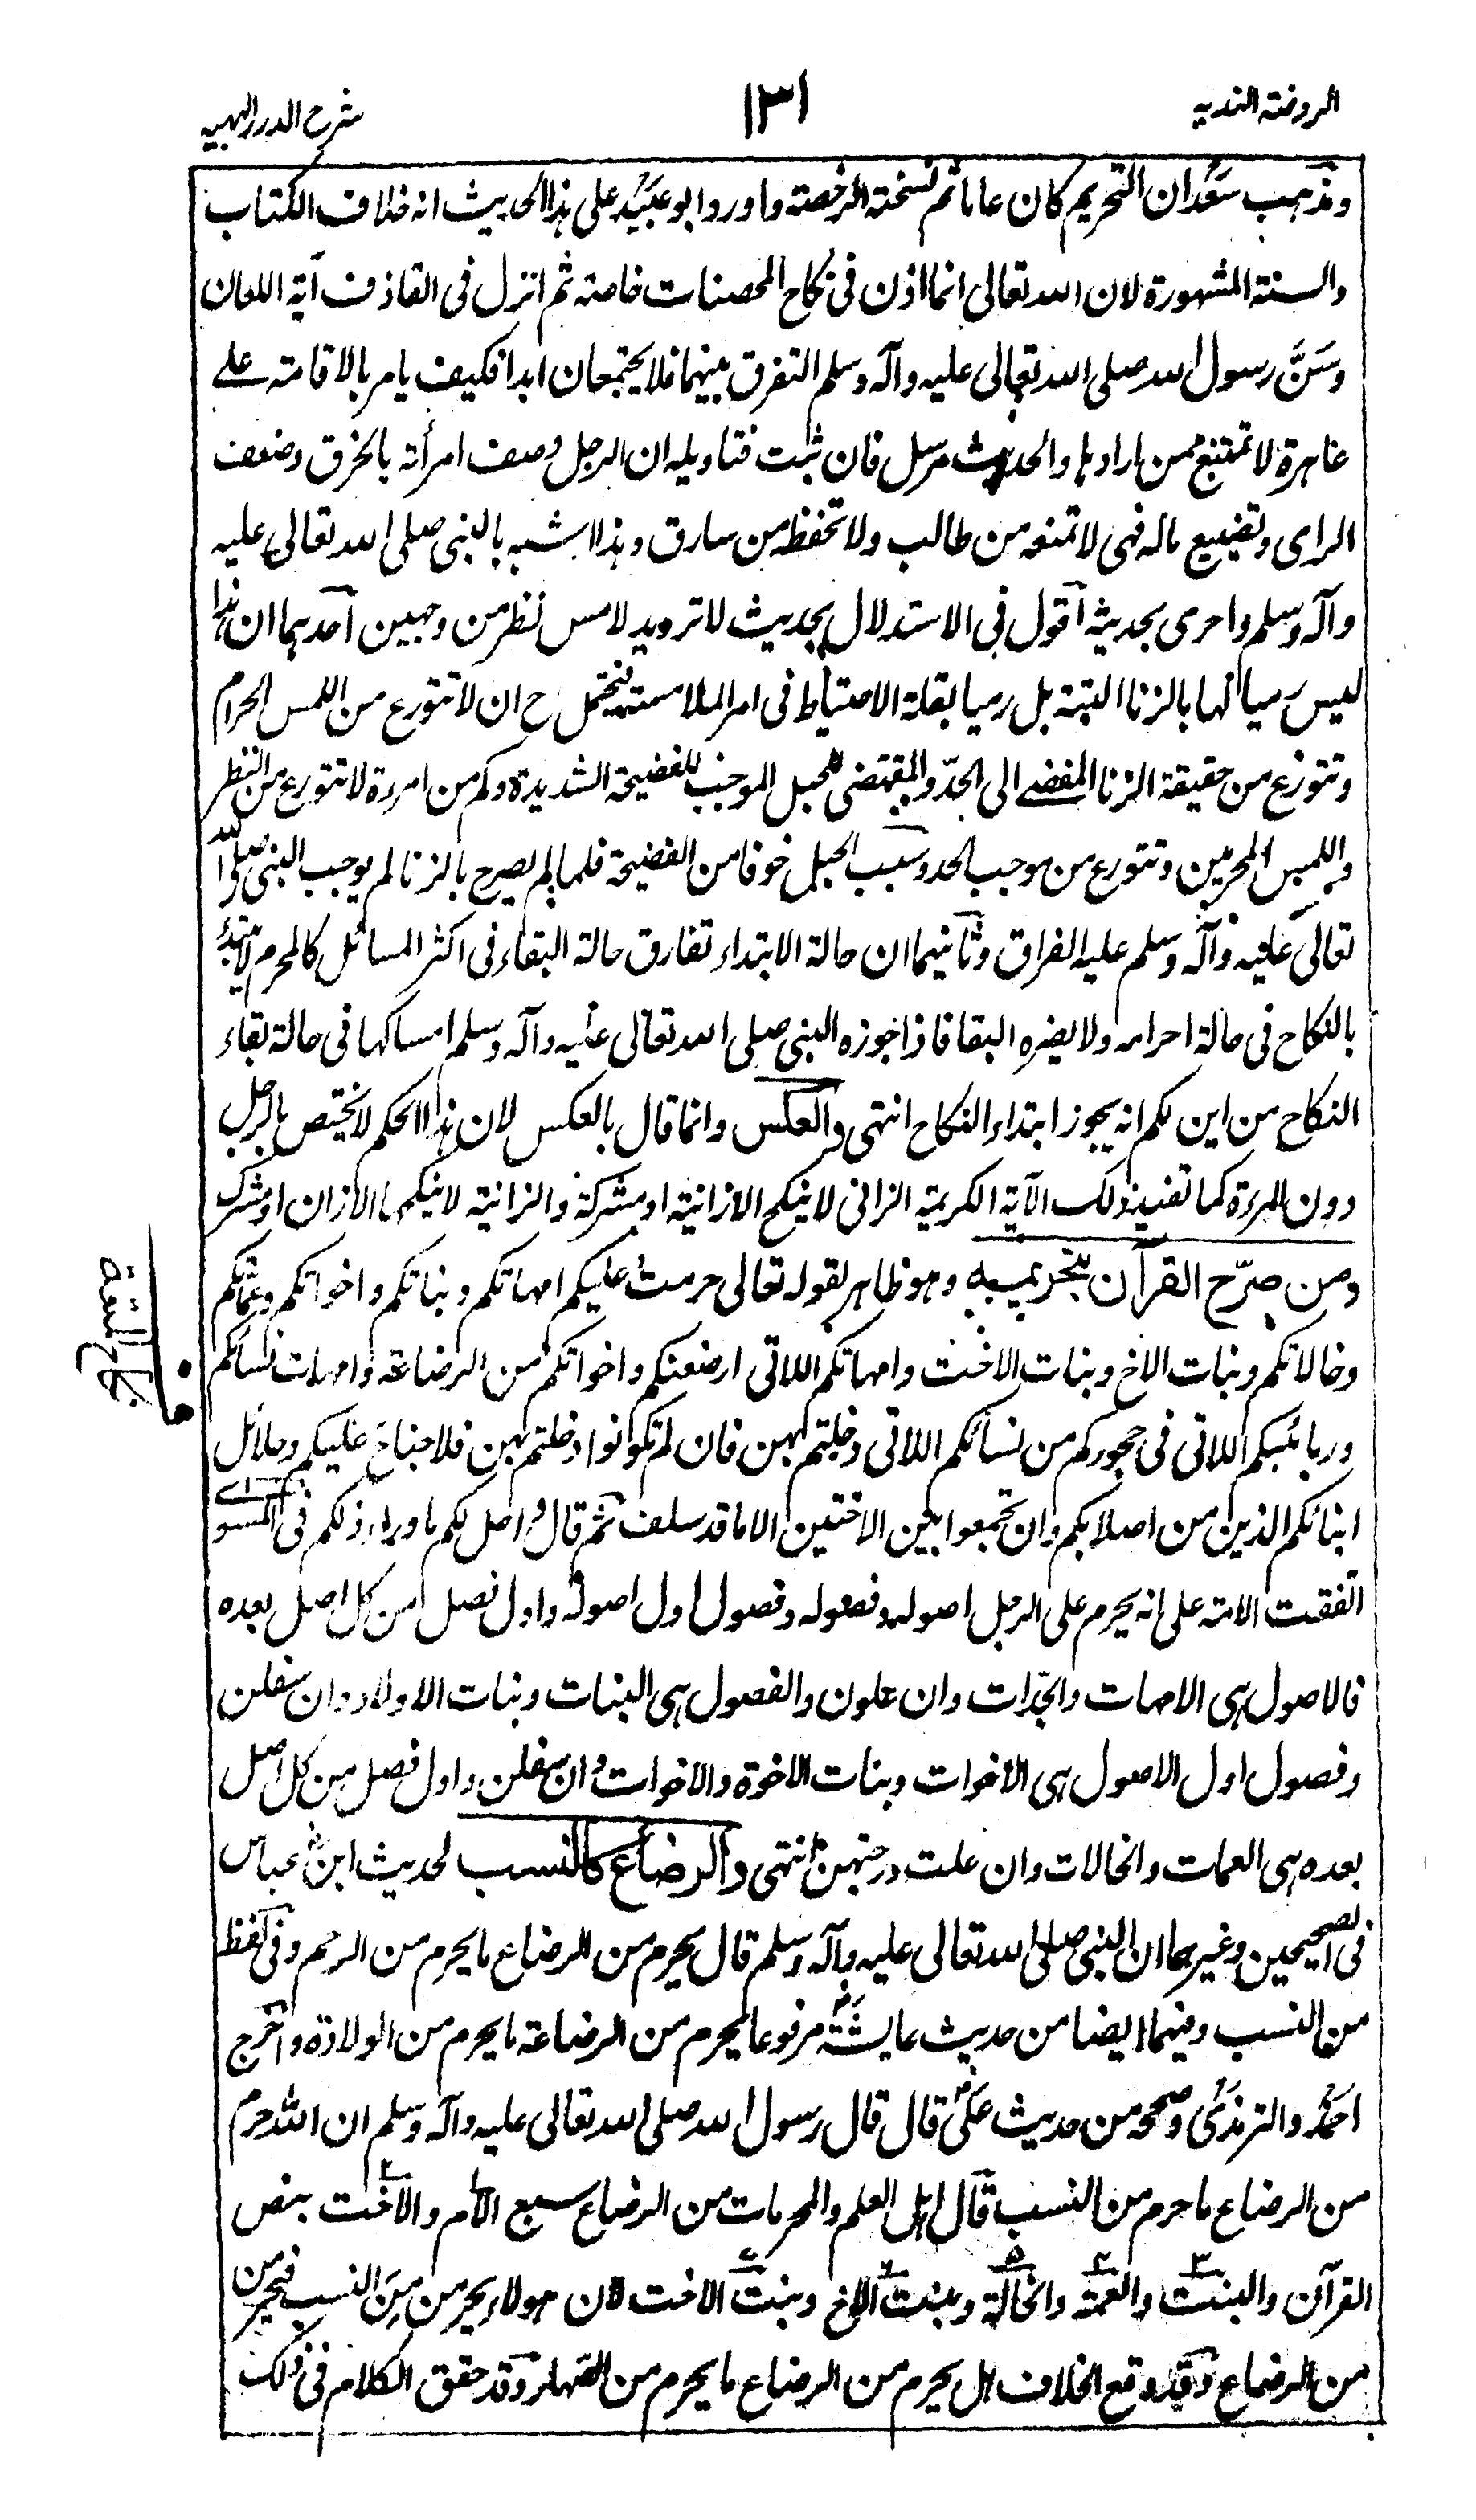 الروضة الندية
١٣١
شرح الدرر البهية
ومذهب سعد ان التحريم كان عاما ثم نسخته الرخصة واورد ابو عبيد على هذا الحديث انه خلاف الكتاب
والسنة المشهورة لان الله تعالى انما اذن فى نكاح المحصنات خاصة ثم انزل فى القاذف آية اللعان
وسَنَّ رسول الله صلى الله تعالى عليه وآله وسلم التفرق بينهما فلا يجتمعان ابدا فكيف يامر بالاقامة على
عاهرة لا تمتنع ممن ارادها والحديث مرسل فان ثبت فتاويله ان الرجل وصف امرأته بالخرق وضعف
الراى وتضييع ماله فهى لا تمنعه من طالب ولا تحفظه من سارق وهذا اشبه بالنبى صلى الله تعالى عليه
وآله وسلم واحرى بحديثه اقول فى الاستدلال بحديث لا ترد يد لامس نظر من وجهين احدهما ان هذا
ليس رميا لها بالزنا البتة بل رميا بقلة الاحتياط فى امر الملامسة فيحتمل ح ان لا تتورع من اللمس الحرام
وتتورع من حقيقة الزنا المفضى الى الحدّ والمقتضى للحبل الموجب للفضيحة الشديدة وكم من امرءة لا تتورع من النظر
واللمس المحرمين وتتورع من موجب الحد وسبب الحبل خوفا من الفضيحة فلما لم يصرح بالزنا لم يوجب النبى صلى الله
تعالى عليه وآله وسلم عليه الفراق وثانيهما ان حالة الابتداء تفارق حالة البقاء فى اكثر المسائل كالمحرم لا يبتدئ
بالنكاح فى حالة احرامه ولا يضره البقا فاذا جوزه النبى صلى الله تعالى عليه وآله وسلم امساكها فى حالة بقاء
النكاح من اين لكم انه يجوز ابتداء النكاح انتهى والعكس وانما قال بالعكس لان هذا الحكم لا يختص بالرجل
دون المرءة كما تفيد ذلك الآية الكريمة الزانى لا ينكح الا زانية او مشركة والزانية لا ينكحها الا زان او مشرك
ومن صرّح القرآن بتحريمه وهو ظاهر لقوله تعالى حرمت عليكم امهاتكم وبناتكم واخواتكم وعماتكم
وخالاتكم وبنات الاخ وبنات الاخت وامهاتكم اللاتى ارضعنكم واخواتكم من الرضاعة وامهات نسائكم
وربائبكم اللاتى فى حجوركم من نسائكم اللاتى دخلتم بهن فان لم تكونوا دخلتم بهن فلا جناح عليكم وحلائل
ابنائكم الذين من اصلابكم وان تجمعوا بين الاختين الا ما قد سلف ثم قال واحل لكم ما وراء ذلكم فى المسوى
اتفقت الامة على انه يحرم على الرجل اصوله وفصوله وفصول اول اصوله واول فصل من كل اصل بعده
فالاصول هى الامهات والجدّات وان علون والفصول هى البنات وبنات الاولاد وان سفلن
وفصول اول الاصول هى الاخوات وبنات الاخوة والاخوات وان سفلن واول فصل من كل اصل
بعده هى العمات والخالات وان علت درجتهن انتهى والرضاع كالنسب لحديث ابن عباس
فى الصحيحين وغيرهما ان النبى صلى الله تعالى عليه وآله وسلم قال يحرم من الرضاع ما يحرم من الرحم وفى لفظ
من النسب وفيهما ايضا من حديث عايشة مرفوعا يحرم من الرضاعة ما يحرم من الولادة واخرج
احمد والترمذى وصححه من حديث على قال قال رسول الله صلى الله تعالى عليه وآله وسلم ان الله حرم
من الرضاع ما حرم من النسب قال اهل العلم والمحرمات من الرضاع سبع الام والاخت بنص
القرآن والبنت والعمة والخالة وبنت الاخ وبنت الاخت لان هولاء يحرمن من النسب فيحرمن
من الرضاع وقد وقع الخلاف هل يحرم من الرضاع ما يحرم من الصهار وقد حقق الكلام فى ذلك